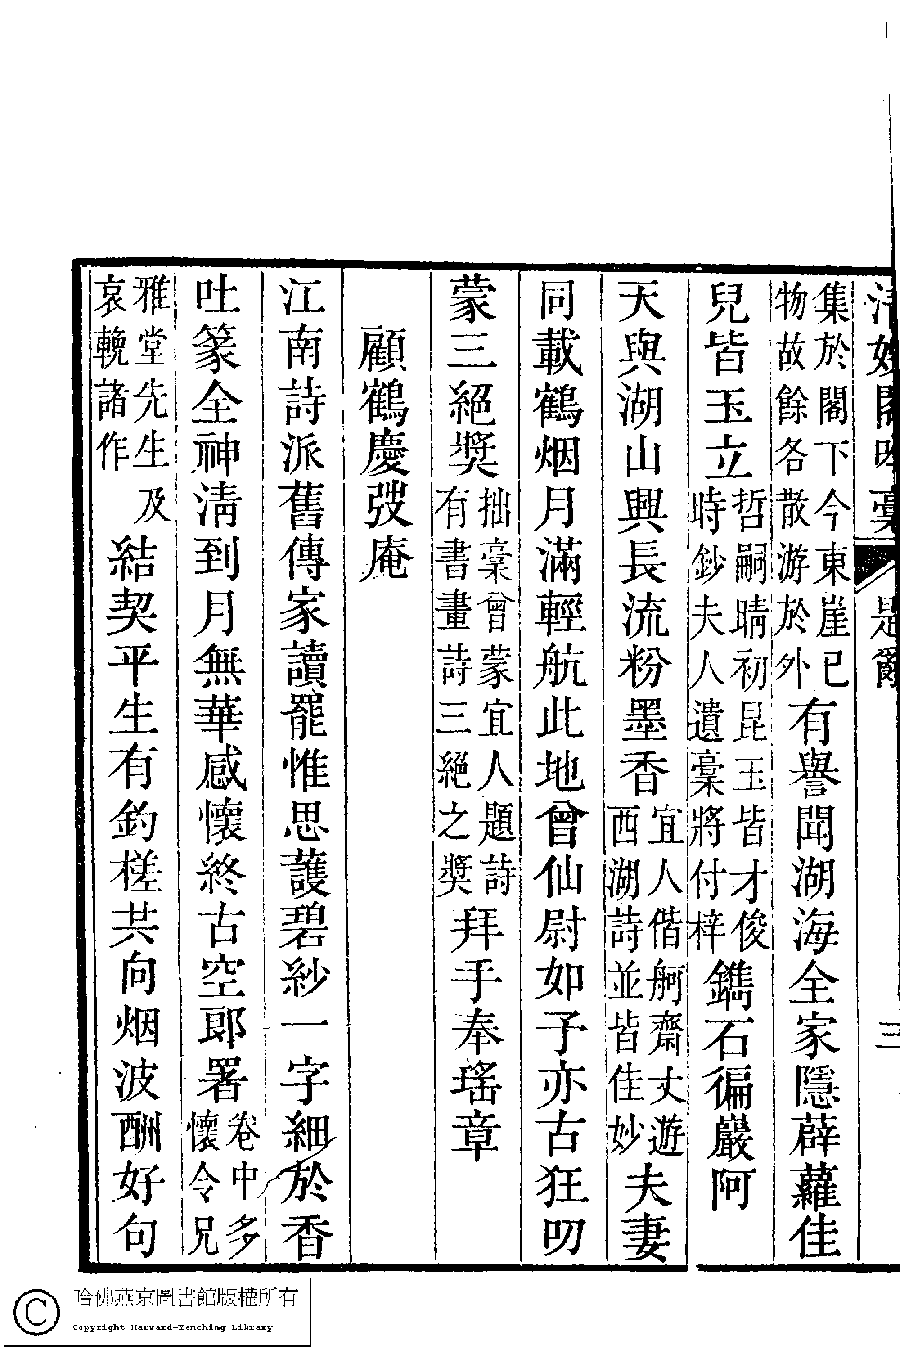 清妙閣吟藁 題辭 三
集於閣下今東崖已物故餘各散游於外有譽聞湖海全家隱薜蘿佳
兒皆玉立哲嗣晴初昆玉皆才俊時鈔夫人遺藁將付梓鐫石徧巖阿
天與湖山興長流粉墨香宜人偕舸齋丈遊西湖詩並皆佳妙夫妻
同載鶴烟月滿輕航此地曾仙尉如予亦古狂叨
蒙三絕獎拙藁曾蒙宜人題詩有書畫詩三絕之獎拜手奉瑤章
顧鶴慶弢庵
江南詩派舊傳家讀罷惟思護碧紗一字細於香
吐篆全神淸到月無華感懷終古空郎署卷中多懷令兄
雅堂先生及哀輓諸作結契平生有釣槎共向烟波酬好句
哈佛燕京圖書館版權所有
Copyright Harvard-Yenching Library